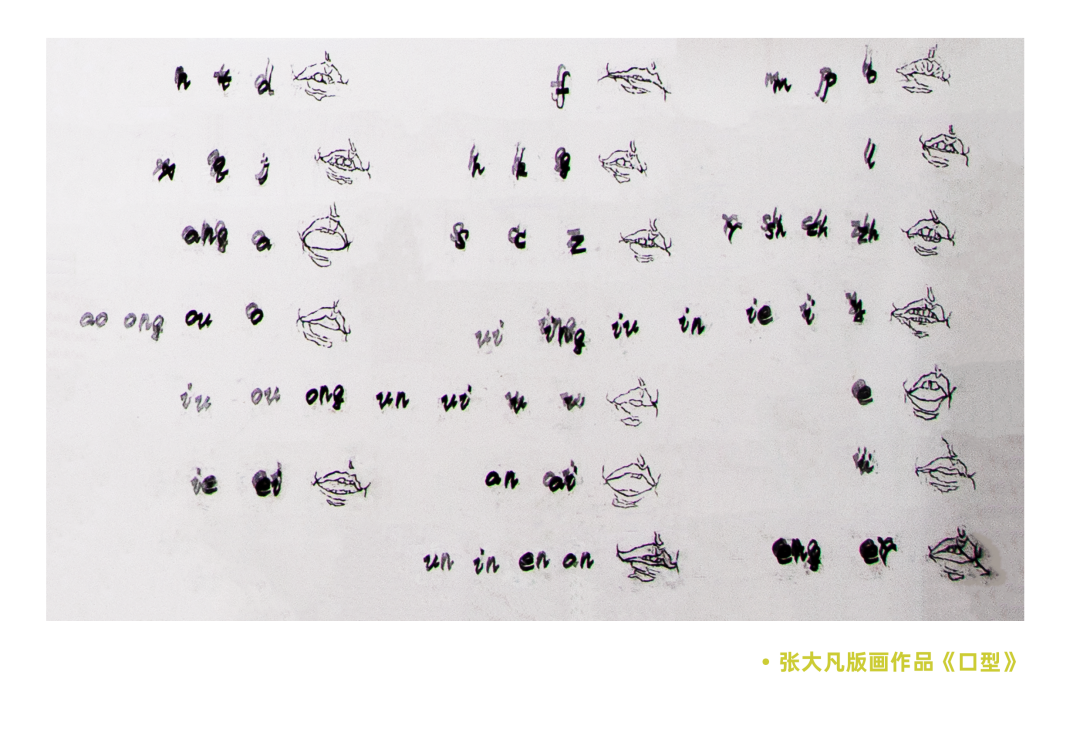 n t d f m p b
x q j h k g l
ang a s c z r sh ch zh
ao ong ou o ui ing iu in ie i y
iu ou ong un ui u w e
ie ei an ai ü
un in en an eng er
• 张大凡版画作品《口型》